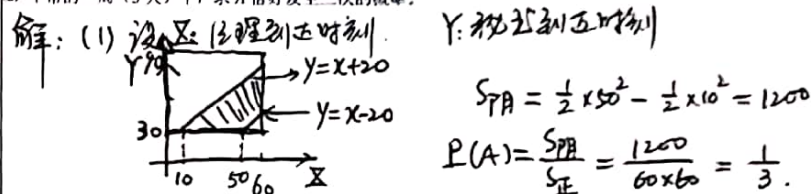 解：(1) 设 X: 经理到达时刻. Y: 秘书到达时刻
Y 90
y=x+20
y=x-20
30
10 50 60 X
S阴 = 1/2 ×50² - 1/2 ×10² = 1200
P(A) = S阴/S正 = 1200/60×60 = 1/3 .